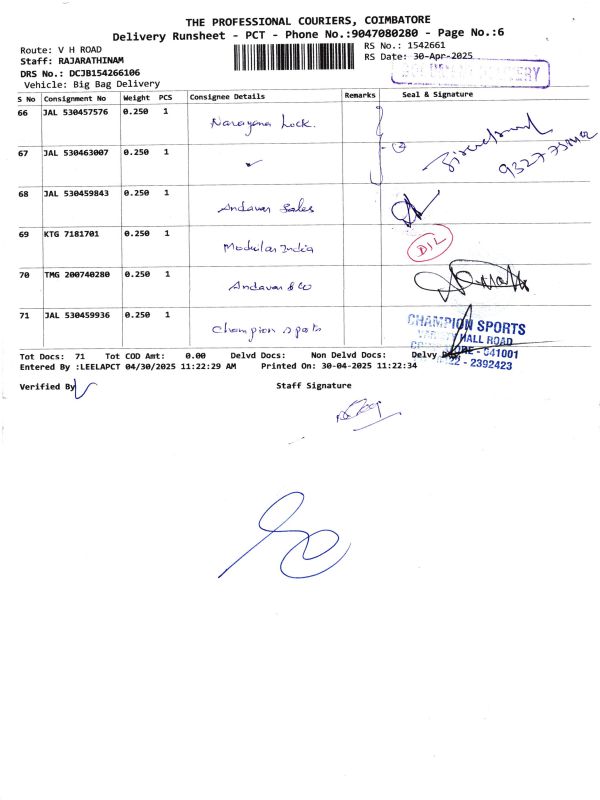 THE PROFESSIONAL COURIERS, COIMBATORE
Delivery Runsheet - PCT - Phone No.:9047080280 - Page No.:6
Route: V H ROAD
RS No.: 1542661
Staff: RAJARATHINAM
RS Date: 30-Apr-2025
DRS No.: DCJB154266106
Vehicle: Big Bag Delivery
S No Consignment No Weight PCS Consignee Details Remarks Seal & Signature
66 JAL 530457576 0.250 1 Narayana Lock.
67 JAL 530463007 0.250 1
68 JAL 530459843 0.250 1 Andavar Sales
69 KTG 7181701 0.250 1 Modular India D/L
70 TMG 200740280 0.250 1 Andavar & Co
71 JAL 530459936 0.250 1 Champion Sports
CHAMPION SPORTS
HALL ROAD
- 641001
- 2392423
Tot Docs: 71 Tot COD Amt: 0.00 Delvd Docs: Non Delvd Docs: Delvy
Entered By :LEELAPCT 04/30/2025 11:22:29 AM Printed On: 30-04-2025 11:22:34
Verified By
Staff Signature